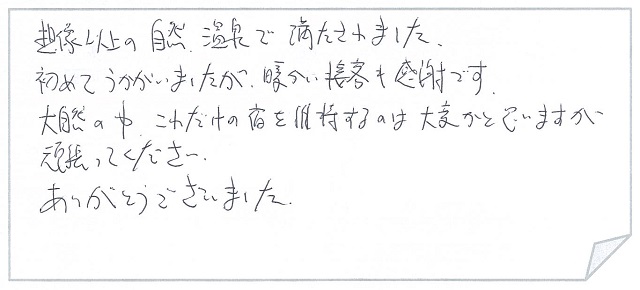 想像以上の自然、温泉で満たされました。
初めてうかがいましたが、暖かい接客も感謝です。
大自然の中、これだけの宿を維持するのは大変かと思いますが、
頑張ってください。
ありがとうございました。